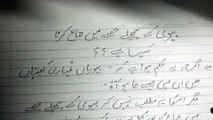 بیوی کے پچھلے حصے میں جماع کرنا
کیسا ہے ؟؟
اگرچہ یہ حکم ہوا ہے کہ بیویاں تمہاری کھیتیاں
ہیں ان میں جیسے چاہو آؤ۔
مگر اسکا یہ مطلب نہیں کہ بیوی کے پچھلے حصے